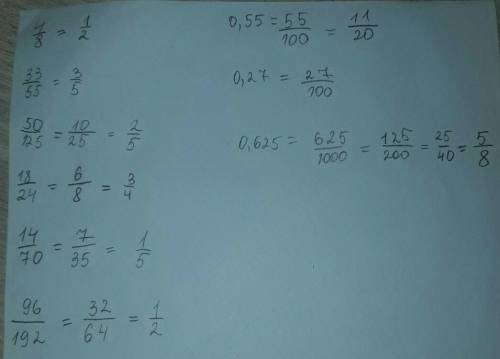 4/8 = 1/2
33/55 = 3/5
50/125 = 10/25 = 2/5
18/24 = 6/8 = 3/4
14/70 = 7/35 = 1/5
96/192 = 32/64 = 1/2
0,55 = 55/100 = 11/20
0,27 = 27/100
0,625 = 625/1000 = 125/200 = 25/40 = 5/8